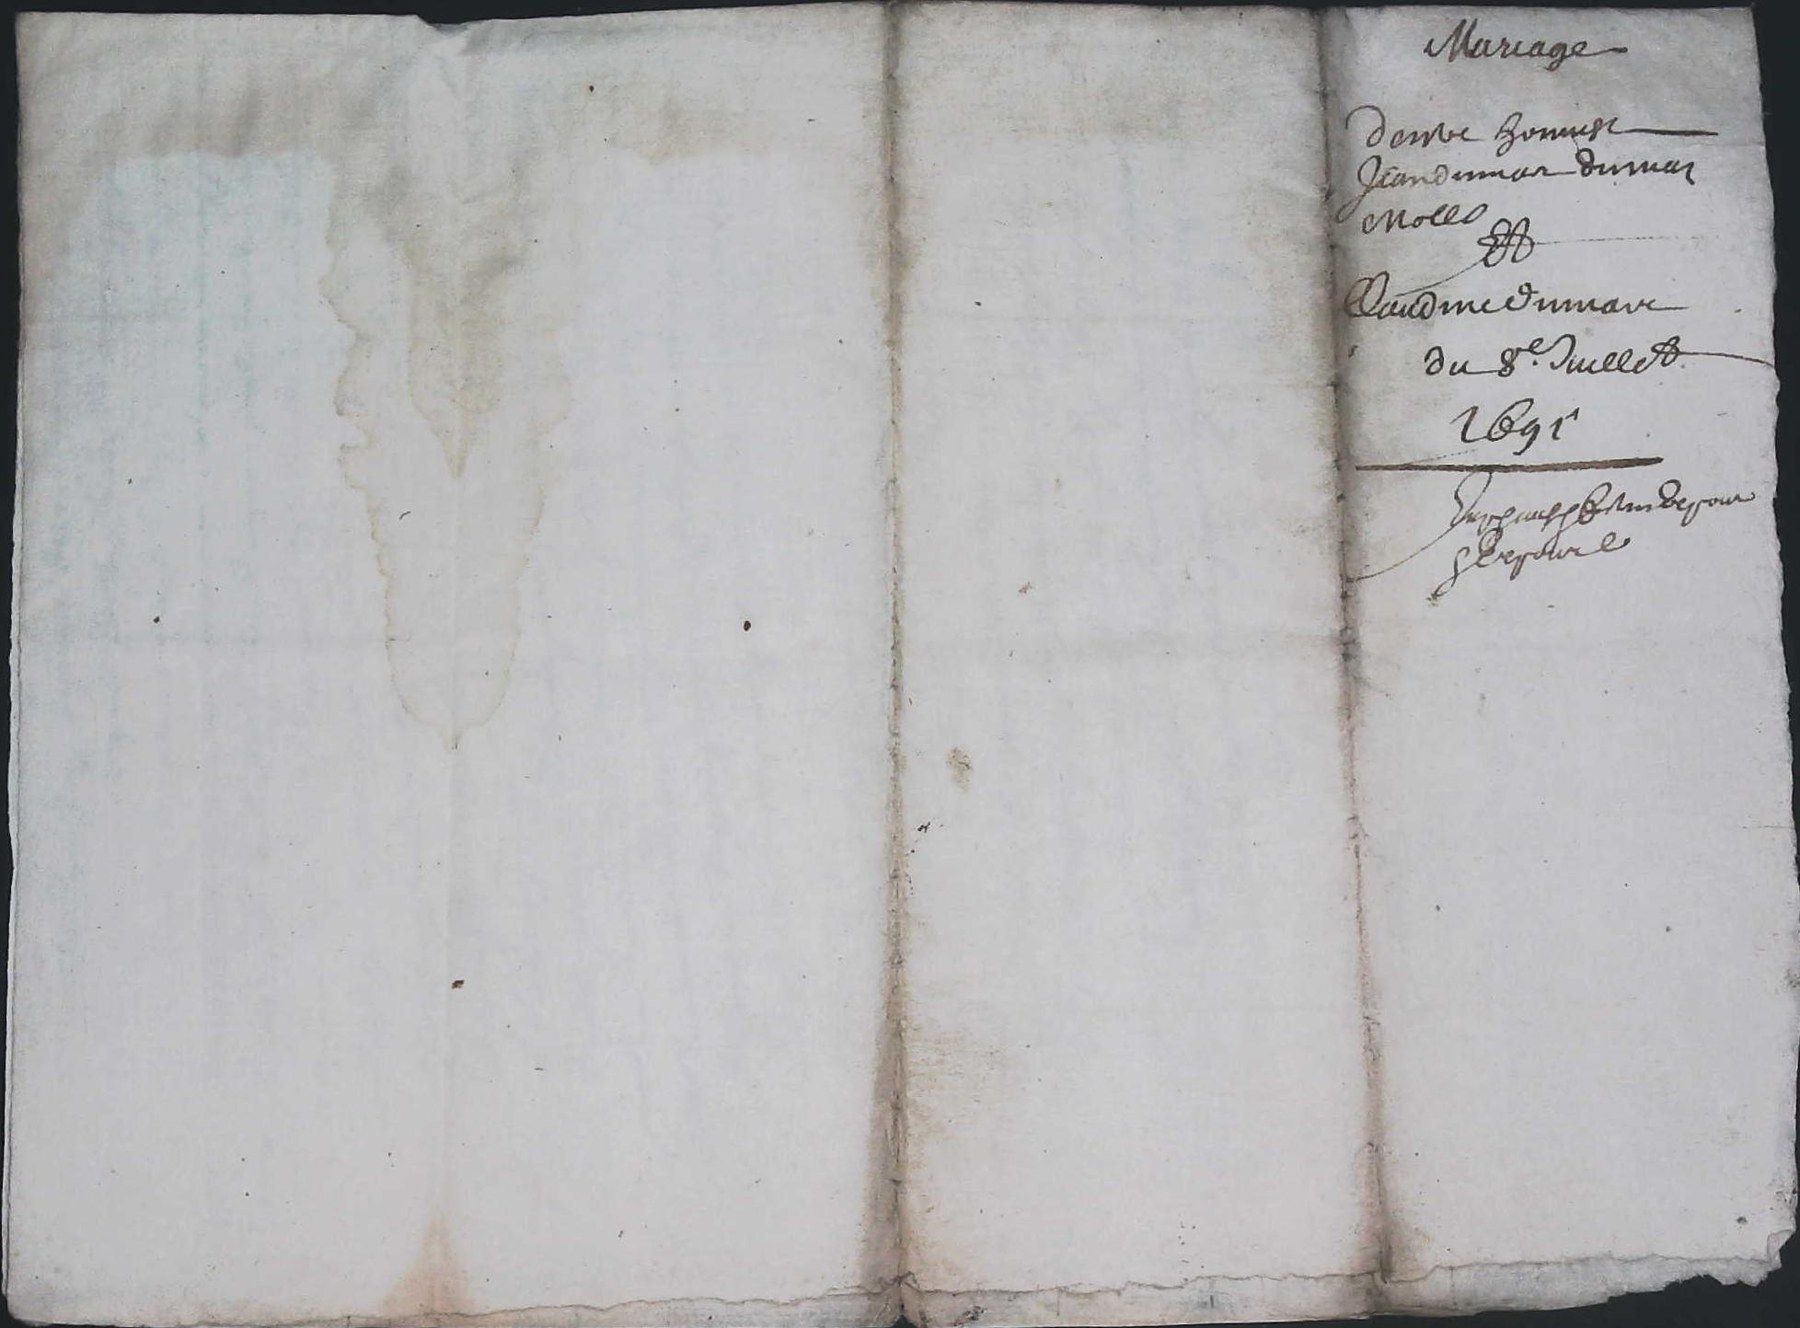 Mariage
dentre honneste
Jean dumas dumas
molle
Et
Claudine dumave
du 8e Juillet
1691